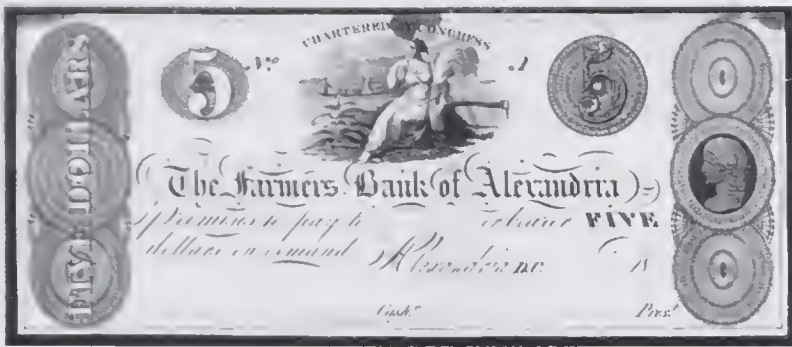 FIVE DOLLARS
CHARTERED BY CONGRESS
5 No A 5
The Farmers Bank of Alexandria
promise to pay to or bearer FIVE
dollars on demand Alexandria D.C. 18
Cashr. Prest.